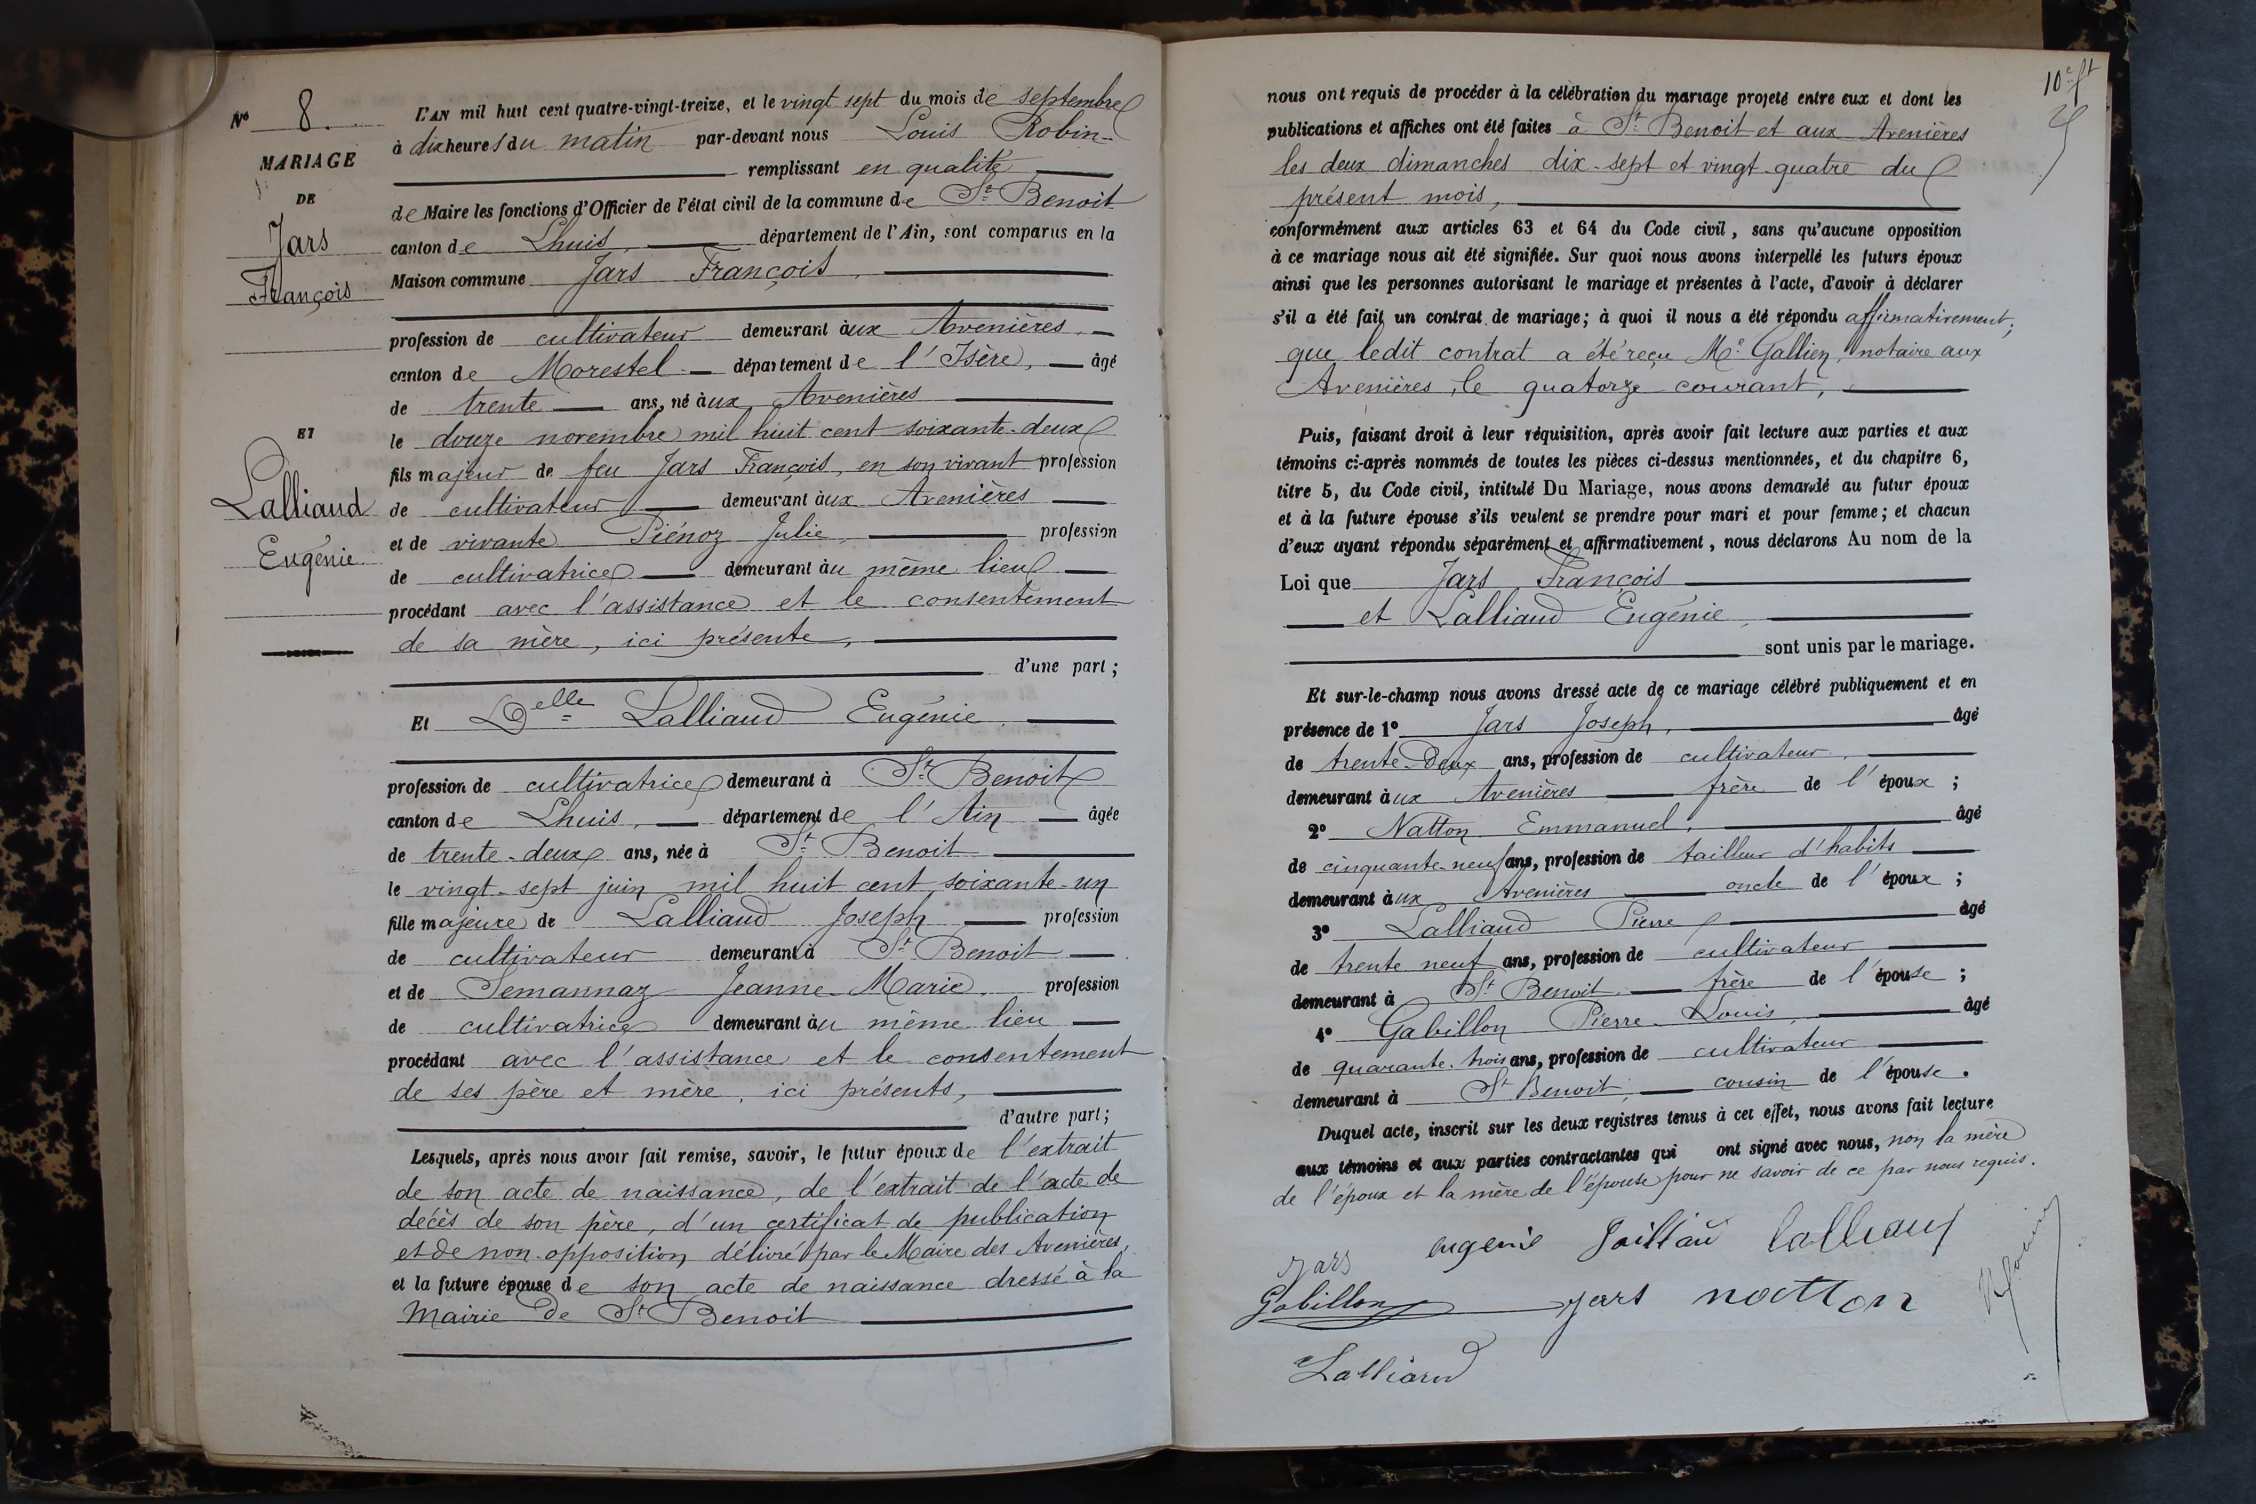 Nº 8.
MARIAGE
DE
Jars
François
ET
Lalliaud
Eugénie
L'AN mil huit cent quatre-vingt-treize, et le vingt sept du mois de septembre
à dix heures du matin par-devant nous Louis Robin
remplissant en qualité
de Maire les fonctions d'Officier de l'état civil de la commune de St Benoit
canton de Lhuis, département de l'Ain, sont comparus en la
Maison commune Jars François,
profession de cultivateur demeurant aux Avenières
canton de Morestel département de l'Isère, âgé
de trente ans, né aux Avenières
le douze novembre mil huit cent soixante-deux
fils majeur de feu Jars François, en son vivant profession
de cultivateur demeurant aux Avenières
et de vivante Piénoz Julie, profession
de cultivatrice demeurant au même lieu
procédant avec l'assistance et le consentement
de sa mère, ici présente,
d'une part ;
Et Delle Lalliaud Eugénie,
profession de cultivatrice demeurant à St Benoit
canton de Lhuis, département de l'Ain âgée
de trente-deux ans, née à St Benoit
le vingt-sept juin mil huit cent soixante-un
fille majeure de Lalliaud Joseph profession
de cultivateur demeurant à St Benoit
et de Semannaz Jeanne-Marie, profession
de cultivatrice demeurant au même lieu
procédant avec l'assistance et le consentement
de ses père et mère, ici présents,
d'autre part ;
Lesquels, après nous avoir fait remise, savoir, le futur époux de l'extrait
de son acte de naissance, de l'extrait de l'acte de
décès de son père, d'un certificat de publication
et de non-opposition délivré par le Maire des Avenières,
et la future épouse de son acte de naissance dressé à la
Mairie de St Benoit
10e ft
nous ont requis de procéder à la célébration du mariage projeté entre eux et dont les
publications et affiches ont été faites à St Benoit et aux Avenières
les deux dimanches dix-sept et vingt-quatre du
présent mois,
conformément aux articles 63 et 64 du Code civil, sans qu'aucune opposition
à ce mariage nous ait été signifiée. Sur quoi nous avons interpellé les futurs époux
ainsi que les personnes autorisant le mariage et présentes à l'acte, d'avoir à déclarer
s'il a été fait un contrat de mariage ; à quoi il nous a été répondu affirmativement ;
que ledit contrat a été reçu Me Gallien, notaire aux
Avenières, le quatorze courant,
Puis, faisant droit à leur réquisition, après avoir fait lecture aux parties et aux
témoins ci-après nommés de toutes les pièces ci-dessus mentionnées, et du chapitre 6,
titre 5, du Code civil, intitulé Du Mariage, nous avons demandé au futur époux
et à la future épouse s'ils veulent se prendre pour mari et pour femme ; et chacun
d'eux ayant répondu séparément et affirmativement, nous déclarons Au nom de la
Loi que Jars François
et Lalliaud Eugénie,
sont unis par le mariage.
Et sur-le-champ nous avons dressé acte de ce mariage célébré publiquement et en
présence de 1º Jars Joseph, âgé
de trente-deux ans, profession de cultivateur,
demeurant aux Avenières frère de l'époux ;
2º Natton Emmanuel, âgé
de cinquante-neuf ans, profession de tailleur d'habits
demeurant aux Avenières oncle de l'époux ;
3º Lalliaud Pierre âgé
de trente neuf ans, profession de cultivateur
demeurant à St Benoit frère de l'épouse ;
4º Gabillon Pierre-Louis, âgé
de quarante-trois ans, profession de cultivateur
demeurant à St Benoit, cousin de l'épouse.
Duquel acte, inscrit sur les deux registres tenus à cet effet, nous avons fait lecture
aux témoins et aux parties contractantes qui ont signé avec nous, non la mère
de l'époux et la mère de l'épouse pour ne savoir de ce par nous requis.
Jars eugenie Jailläu lalliaud
Gabillon Jars natton
Lalliaud